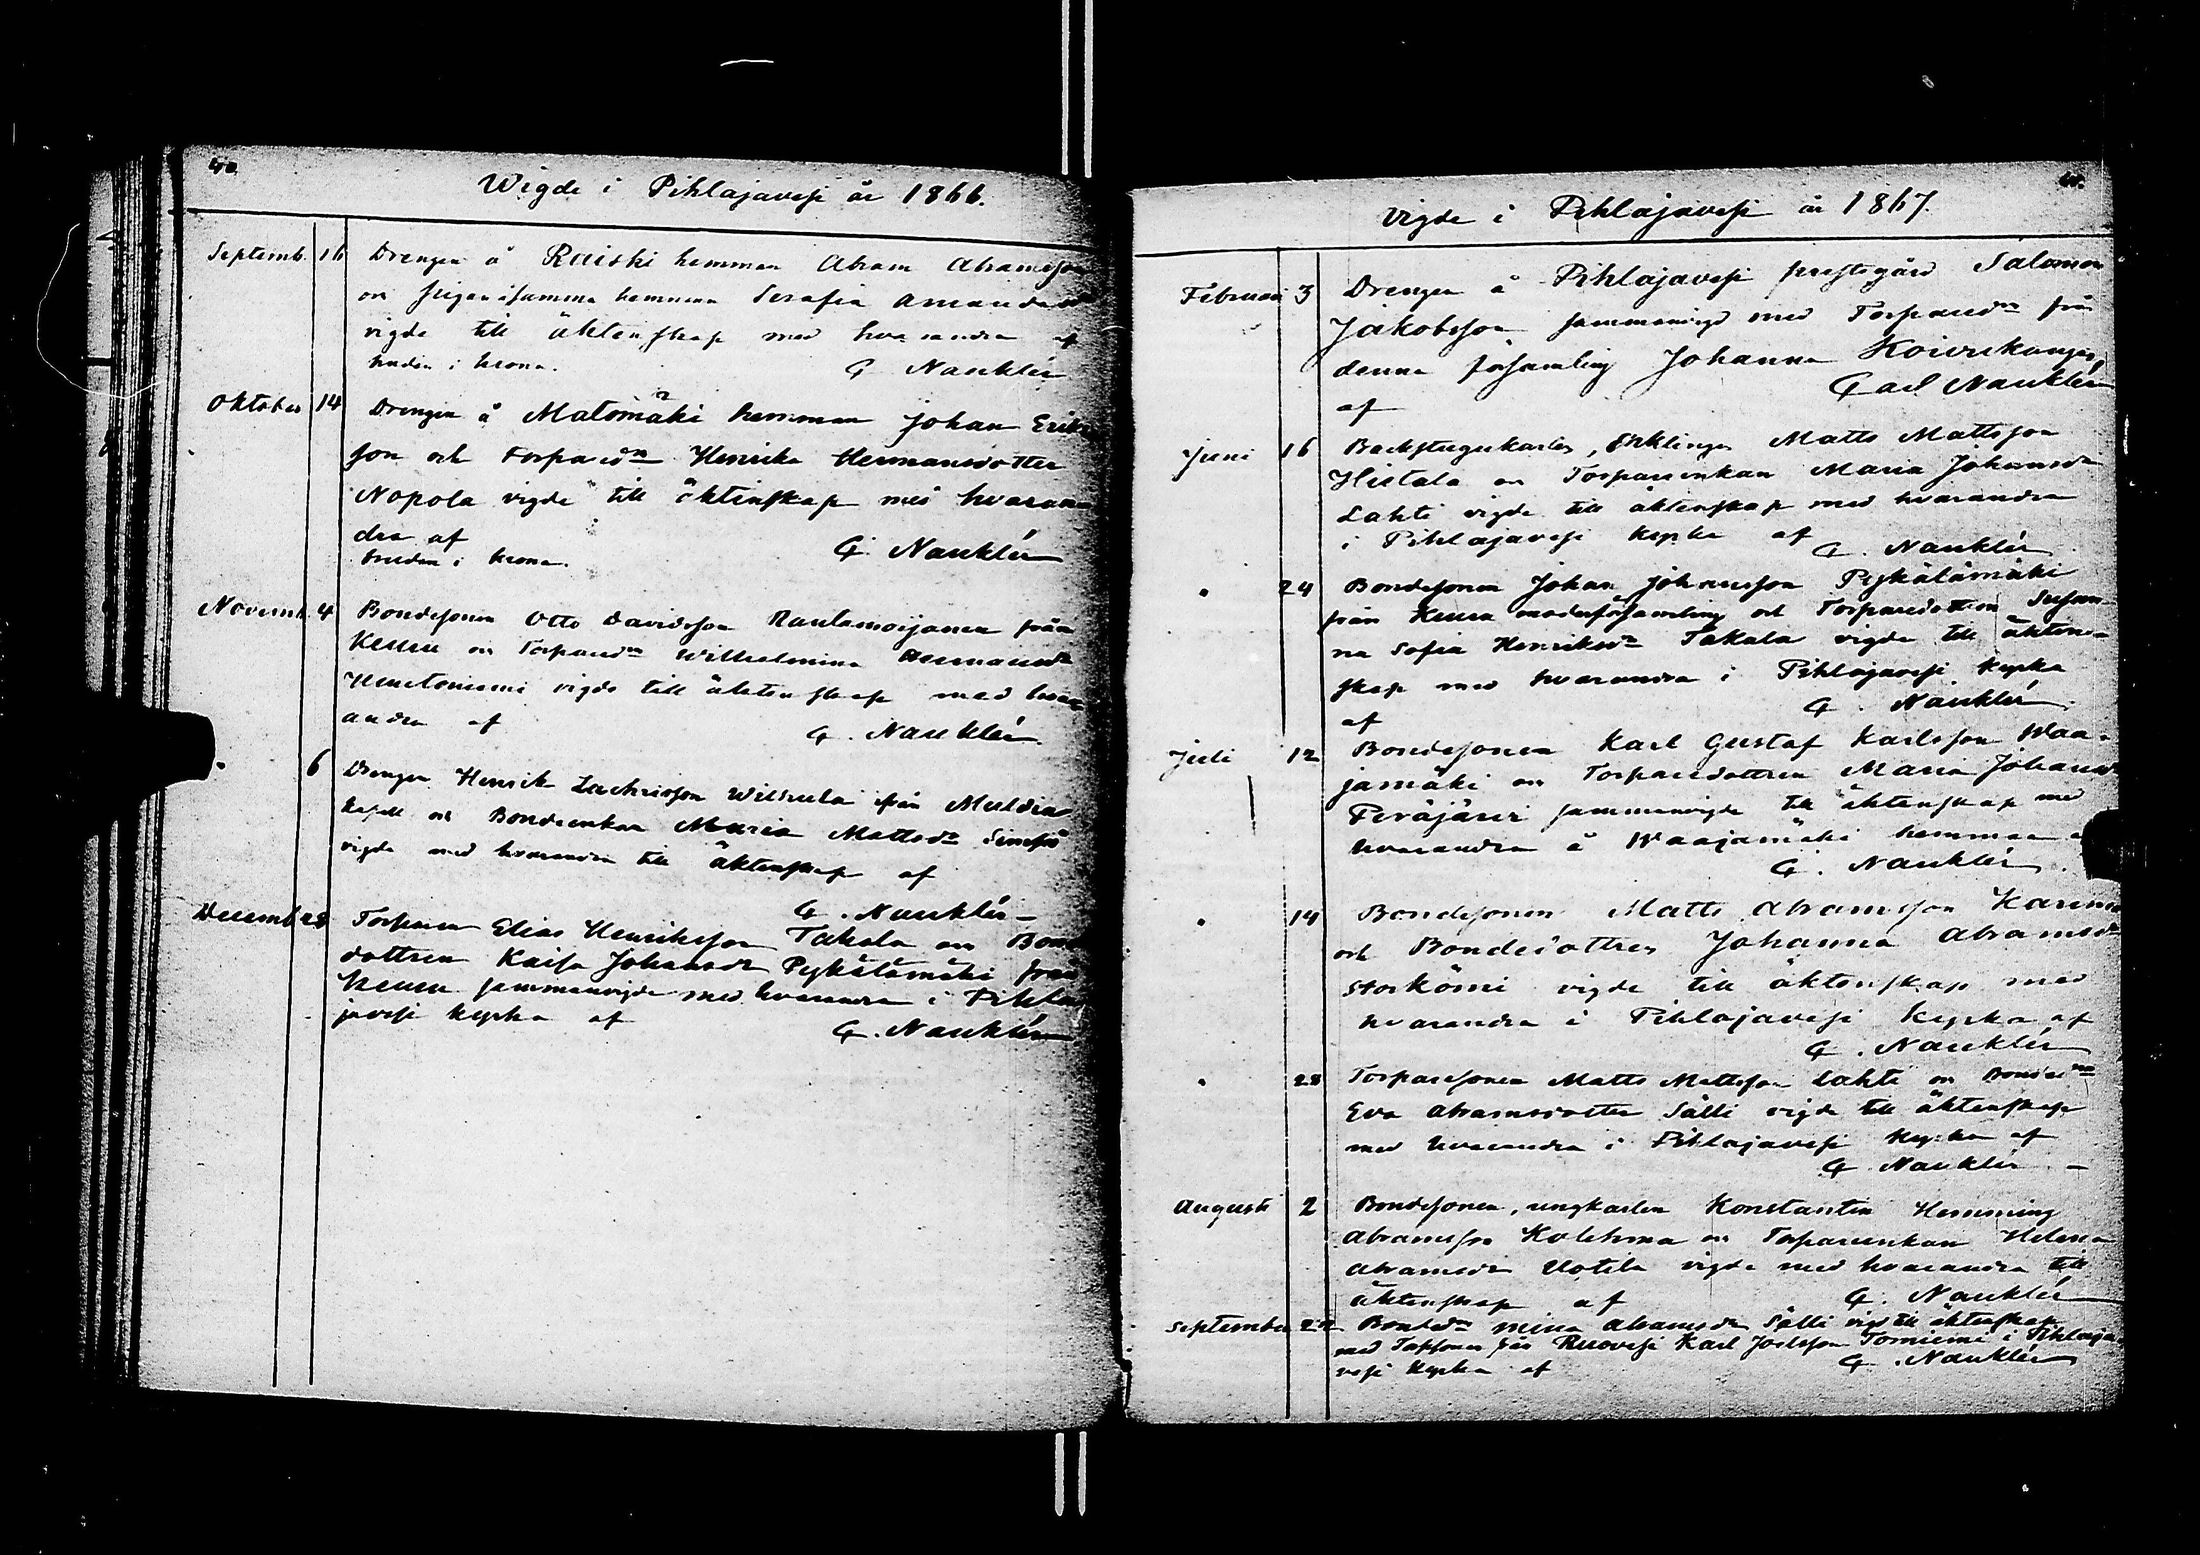 40.
Wigde i Pihlajavesi år 1866.
Septemb. 16 Drengen å Raiski hemman Abram Abramsson
och pigan å samma hemman Serafia Amanda
vigde till äktenskap med hvarandra af
bruden i krona. G Nauklér
Oktober 14 Drengen å Matomäki hemman Johan Eriks
son och Torpared:n Henrika Hermansdotter
Nopola vigde till äktenskap med hvaran
dra af
bruden i krona. G. Nauklér
Novemb. 4 Bondesonen Otto Davidsson Rautamoijanen från
Keuru och Torpared:n Wilhelmina Hermansdr
vigde till äktenskap med hvar
andra af G. Nauklér.
" 6 Drengen Henrik Zachrisson från Muldia
kapell och Bondeenkan Maria Mattsdr
vigde med hvarandra till äktenskap af
G. Nauklér
Decemb. 28 Torparen Elias Henriksson Takala och Bonde
dottren Kaisa Johansdr Pykälämäki från
Keuru sammanvigde med hvarandra i Pihla
javesi kyrka af G. Nauklér
Vigde i Pihlajavesi år 1867.
Februari 3 Drengen å Pihlajavesi prestegård Salomon
Jakobsson sammanvigd med Torpared:n från
denna församling Johanna Koivukangas
af Carl Nauklér
Juni 16 Backstugukarlen, Enklingen Matts Mattsson
Hietala och Torpareenkan Maria Johansdr
Lahti vigde till äktenskap med hvarandra
i Pihlajavesi kyrka af G. Nauklér
" 24 Bondesonen Johan Johansson Pykälämäki
från Keuru moderförsamling och Torparedottren Susan-
na Sofia Henriksdr Takala vigde till äkten-
skap med hvarandra i Pihlajavesi kyrka
af G. Nauklér
Juli 12 Bondesonen Karl Gustaf Karlsson Waa-
jamäki och Torparedottren Maria Johansdr
Peräjärvi sammanvigde till äktenskap med
hvarandra å Waajamäki hemman af
G. Nauklér.
" 14 Bondesonen Matts Abramsson
och Bondedottren Johanna Abramsdr
Storkömi vigde till äktenskap med
hvarandra i Pihlajavesi kyrka af
G. Nauklér
" 28 Torparesonen Matts Mattsson Lahti och Bonded:n
Eva Abramsdotter Sälli vigde till äktenskap
med hvarandra i Pihlajavesi kyrka af
G. Nauklér
Augusti 2 Bondesonen, ungkarlen Konstantin Hemming
Abramsson Kolehma och Torpareenkan Helena
Abramsdr Uotila vigde med hvarandra till
äktenskap af G. Nauklér
September 22 Bonded:n Mina Abramsdr Sälli vigd till äktenskap
med Torpsonen från Ruovesi Karl Joelsson Torniemi i Pihlaja
vesi kyrka af G. Nauklér